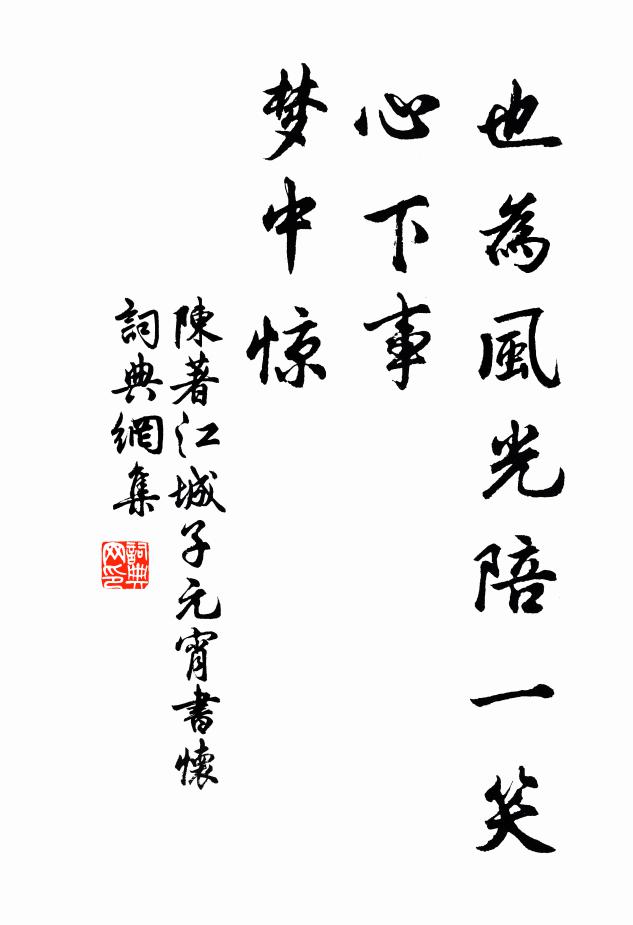 也為風光陪一笑
心下事
梦中惊
陳著江城子元宵書懷
詞典網集
詞典
网印